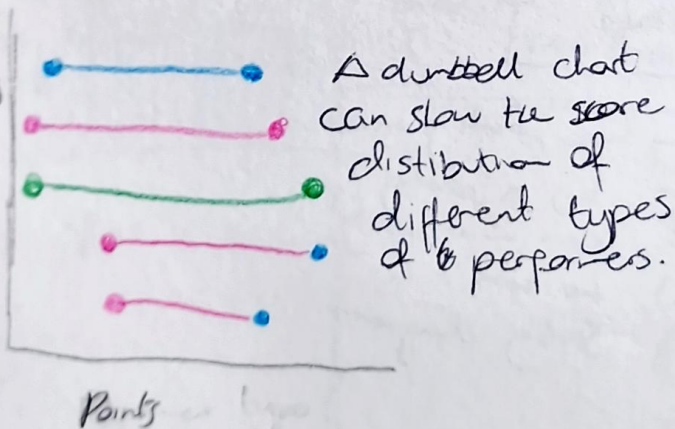 A dumbbell chart
can slow the score
distibution of
different types
of performers.
Points